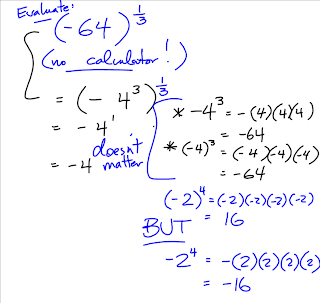 Evaluate:
(-64)^(1/3)
(no calculator!)
= (-4³)^(1/3)
= -4¹
= -4 doesn't matter
* -4³ = -(4)(4)(4)
= -64
* (-4)³ = (-4)(-4)(-4)
= -64
(-2)⁴ = (-2)(-2)(-2)(-2)
= 16
BUT
-2⁴ = -(2)(2)(2)(2)
= -16